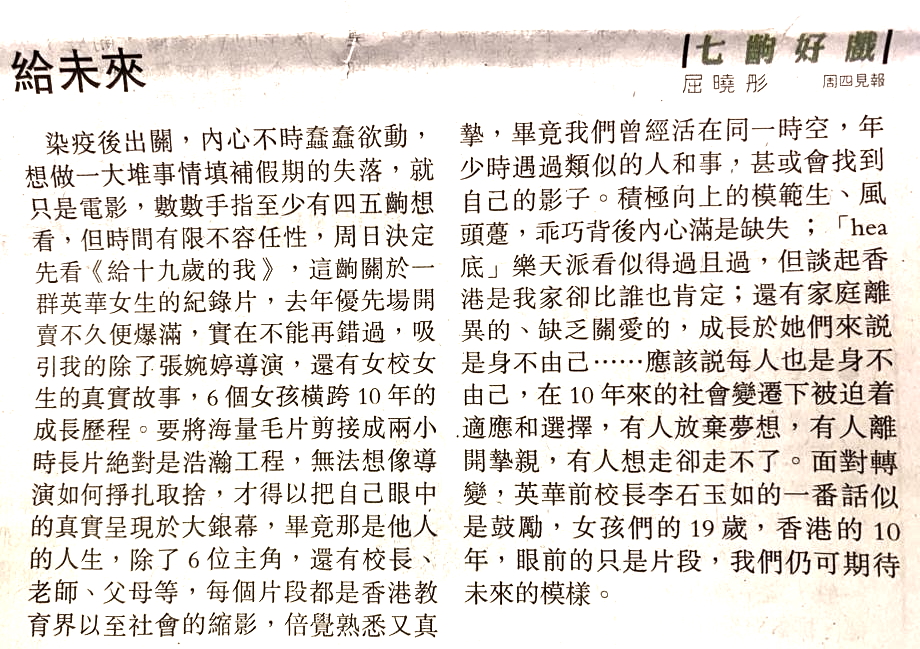 給未來
七齣好戲
屈曉彤
周四見報
染疫後出關，內心不時蠢蠢欲動，
想做一大堆事情填補假期的失落，就
只是電影，數數手指至少有四五齣想
看，但時間有限不容任性，周日決定
先看《給十九歲的我》，這齣關於一
群英華女生的紀錄片，去年優先場開
賣不久便爆滿，實在不能再錯過，吸
引我的除了張婉婷導演，還有女校女
生的真實故事，6個女孩橫跨10年的
成長歷程。要將海量毛片剪接成兩小
時長片絕對是浩瀚工程，無法想像導
演如何掙扎取捨，才得以把自己眼中
的真實呈現於大銀幕，畢竟那是他人
的人生，除了6位主角，還有校長、
老師、父母等，每個片段都是香港教
育界以至社會的縮影，倍覺熟悉又真
摯，畢竟我們曾經活在同一時空，年
少時遇過類似的人和事，甚或會找到
自己的影子。積極向上的模範生、風
頭躉，乖巧背後內心滿是缺失；「hea
底」樂天派看似得過且過，但談起香
港是我家卻比誰也肯定；還有家庭離
異的、缺乏關愛的，成長於她們來説
是身不由己……應該説每人也是身不
由己，在10年來的社會變遷下被迫着
適應和選擇，有人放棄夢想，有人離
開摯親，有人想走卻走不了。面對轉
變，英華前校長李石玉如的一番話似
是鼓勵，女孩們的19歲，香港的10
年，眼前的只是片段，我們仍可期待
未來的模樣。